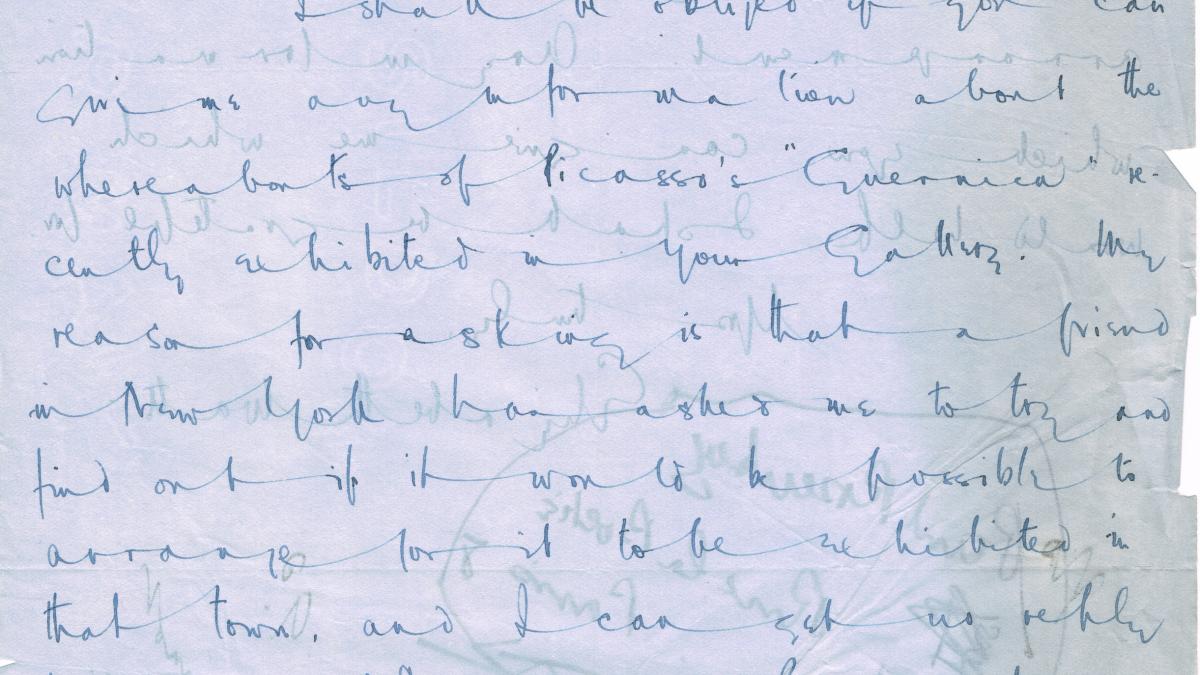 I shall be obliged if you can
give me any information about the
whereabouts of Picasso's "Guernica" re-
cently exhibited in your Gallery. My
reason for asking is that a friend
in New York has asked me to try and
find out if it would be possible to
arrange for it to be exhibited in
that town, and I can get no reply